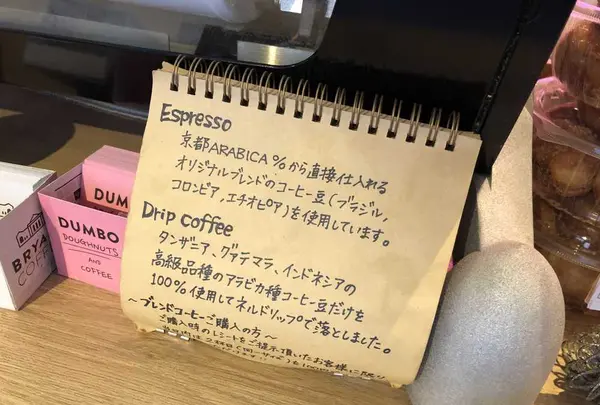 Espresso
京都ARABICA%から直接仕入れる
オリジナルブレンドのコーヒー豆(ブラジル,
コロンビア,エチオピア)を使用しています。
Drip coffee
タンザニア、グァテマラ、インドネシアの
高級品種のアラビカ種コーヒー豆だけを
100%使用してネルドリップで落としました。
〜ブレンドコーヒーご購入の方〜
ご購入時のレシートをご提示頂いたお客様に限り
DUM
DUMBO
DOUGHNUTS
AND
COFFEE
BRYA